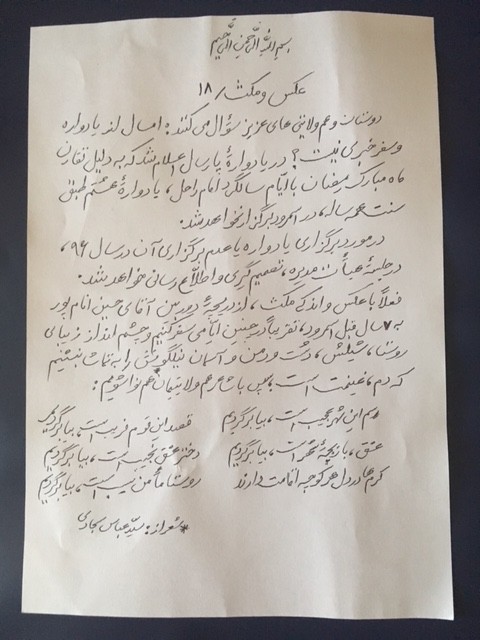 بسم الله الرحمن الرحیم
عکس و مکث/ ۱۸
دوستان و هم ولایتی های عزیز سؤال می کنند: امسال از یادواره
و سفر خبری نیست؟ در یادوارهٔ پارسال اعلام شد که به دلیل تقارن
ماه مبارک رمضان با ایّام سالگرد امام راحل، یادوارهٔ هشتم طبق
سنت همه ساله، در امرود برگزار نخواهد شد.
در مورد برگزاری یادواره یا عدم برگزاری آن در سال ۹۶،
در جلسهٔ هیأت مدیره، تصمیم گیری و اطلاع رسانی خواهد شد.
فعلاً با عکس و اندکی مکث، از دریچهٔ دوربین آقای حسین امام پور
به ۷ سال قبل امرود، تقریباً در چنین ایّامی سفر کنیم و چشم انداز زیبای
روستا، شیلش، دشت و دمن و آسمان نیلگونش را به تماشا بنشینیم
که دم، غنیمت است؛ پس با شعر هم ولایتیمان هم نوا شویم:
هم این شهر عجیب است، بیا برگردیم
قصد این قوم فریب است، بیا برگردیم
عشق، بازیچهٔ شهر است، بیا برگردیم
دختر عشق نجیب است، بیا برگردیم
گرم ها در دل هر کوچه اقامت دارند
روستا مأمن سیب است، بیا برگردیم
*شعر از: سیّد عباس سجادی